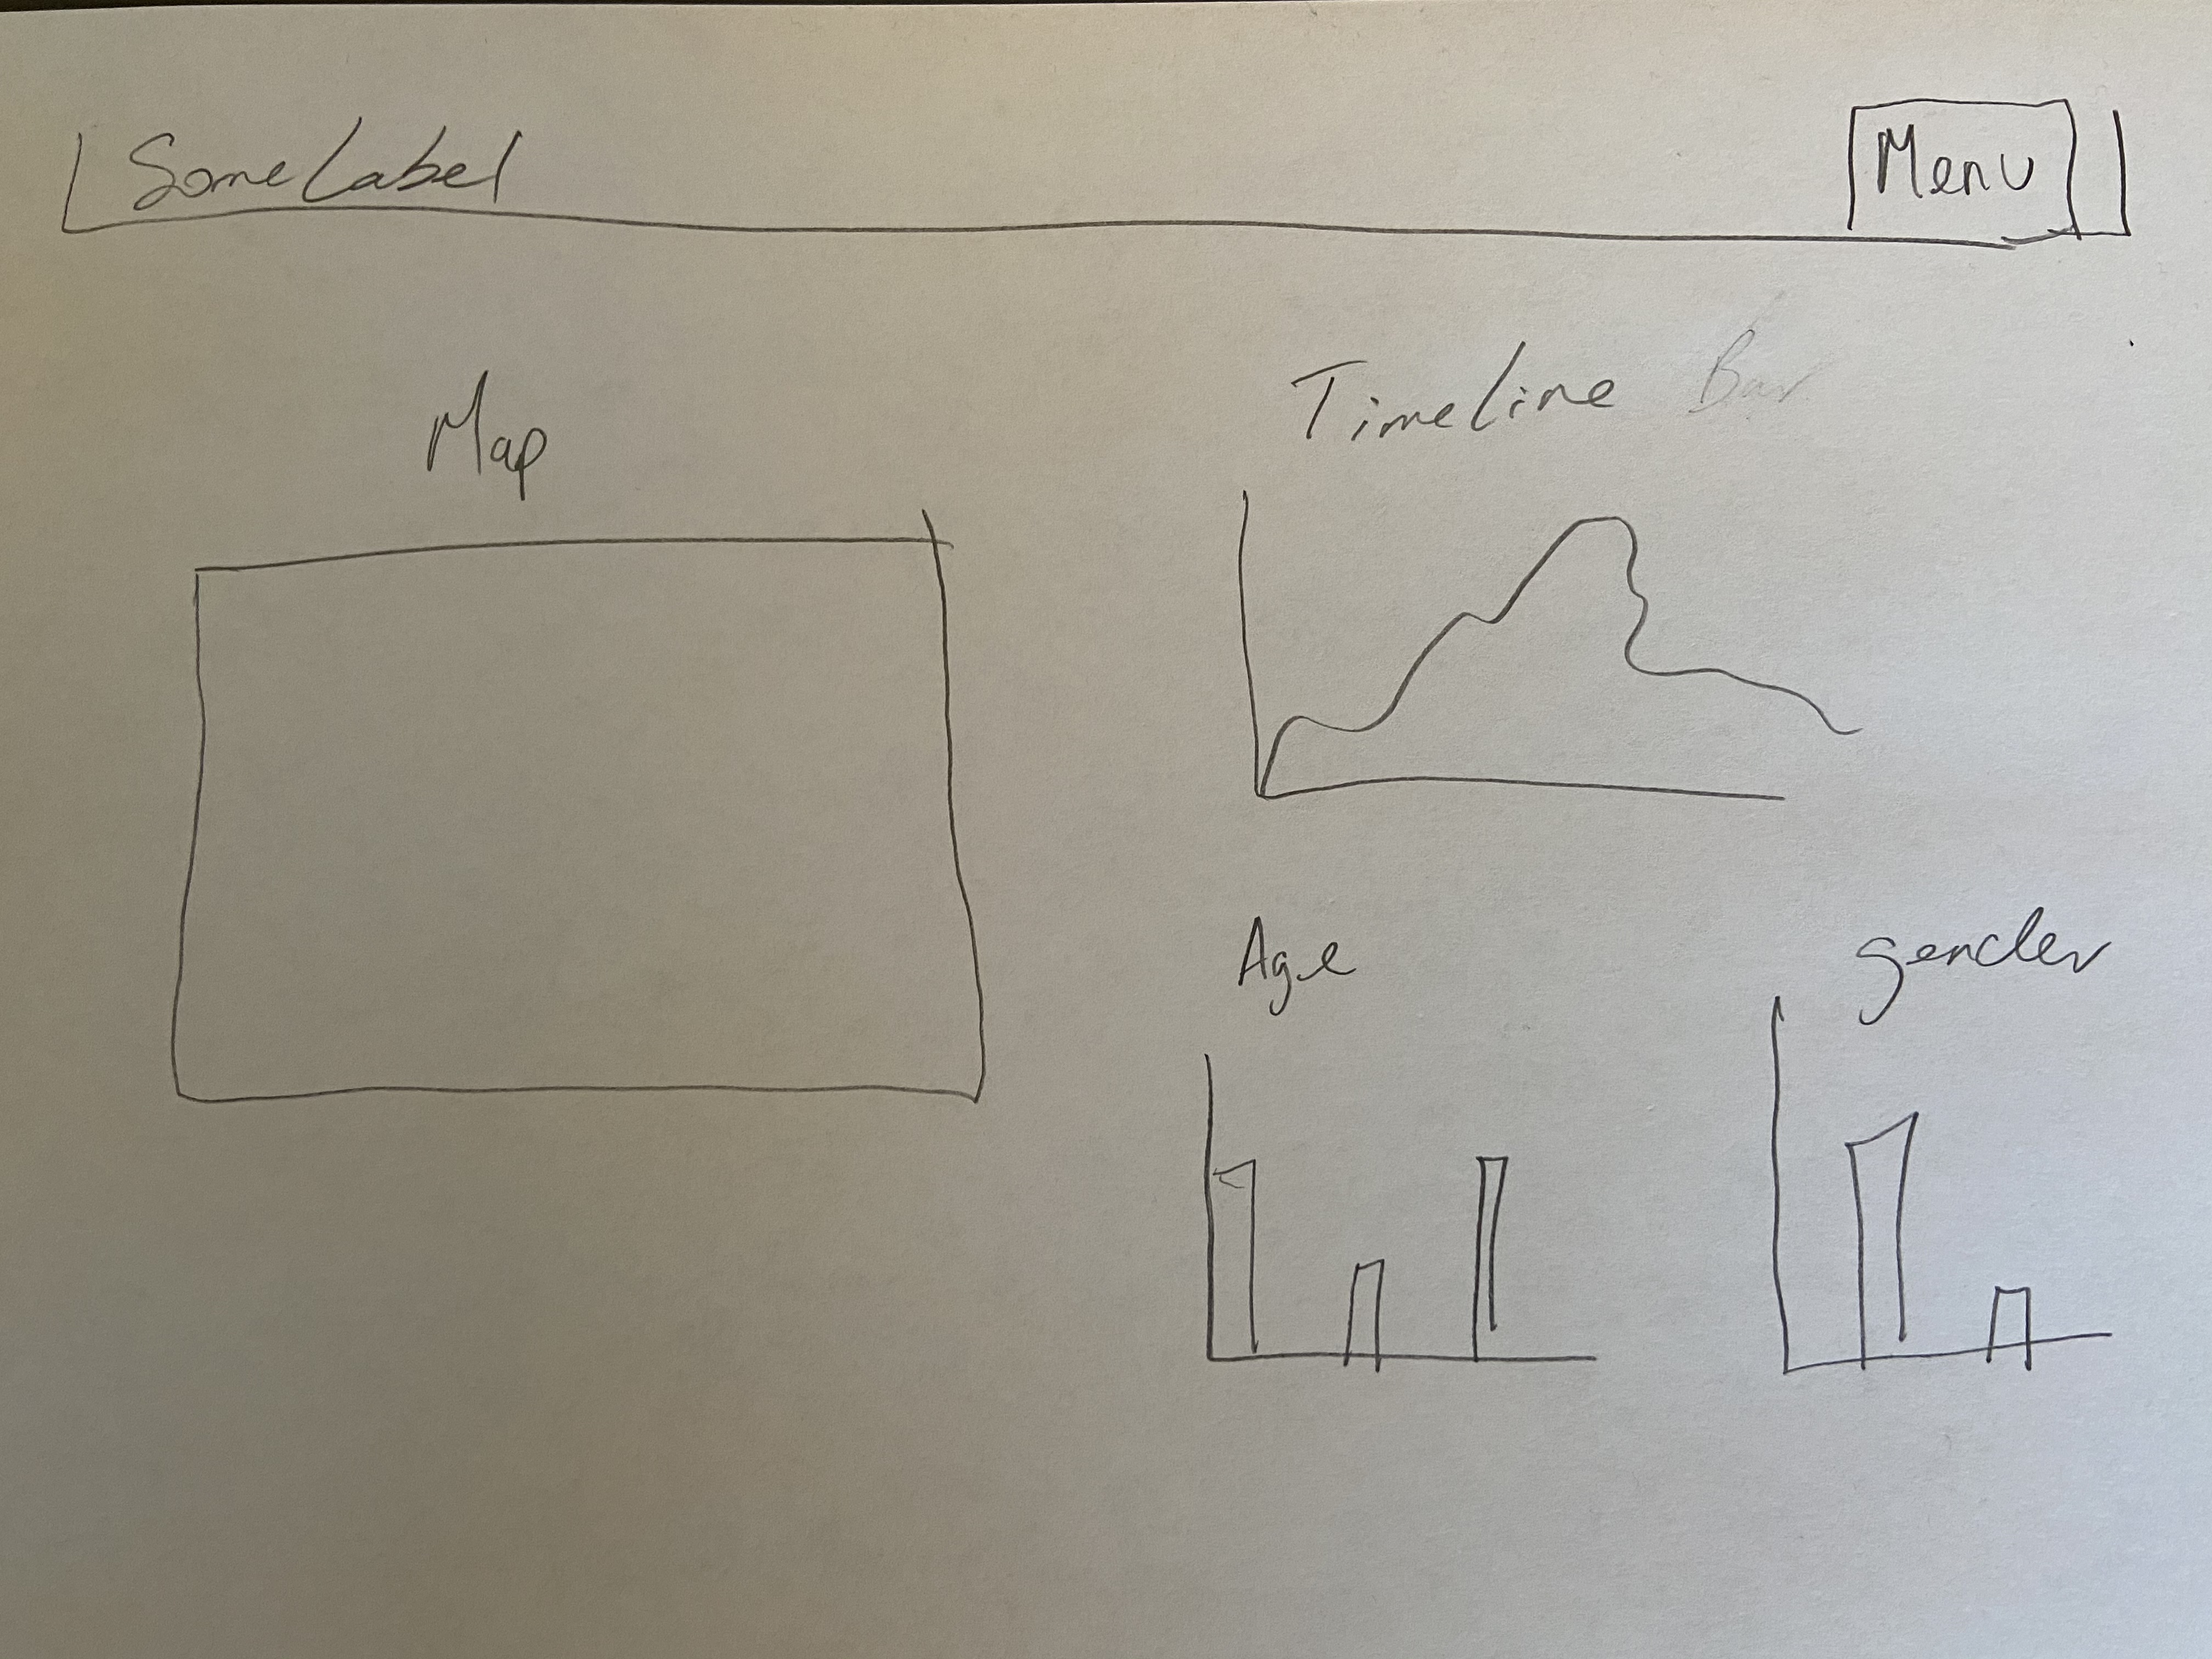 Some Label
Menu
Map
Timeline Bar
Age
gender